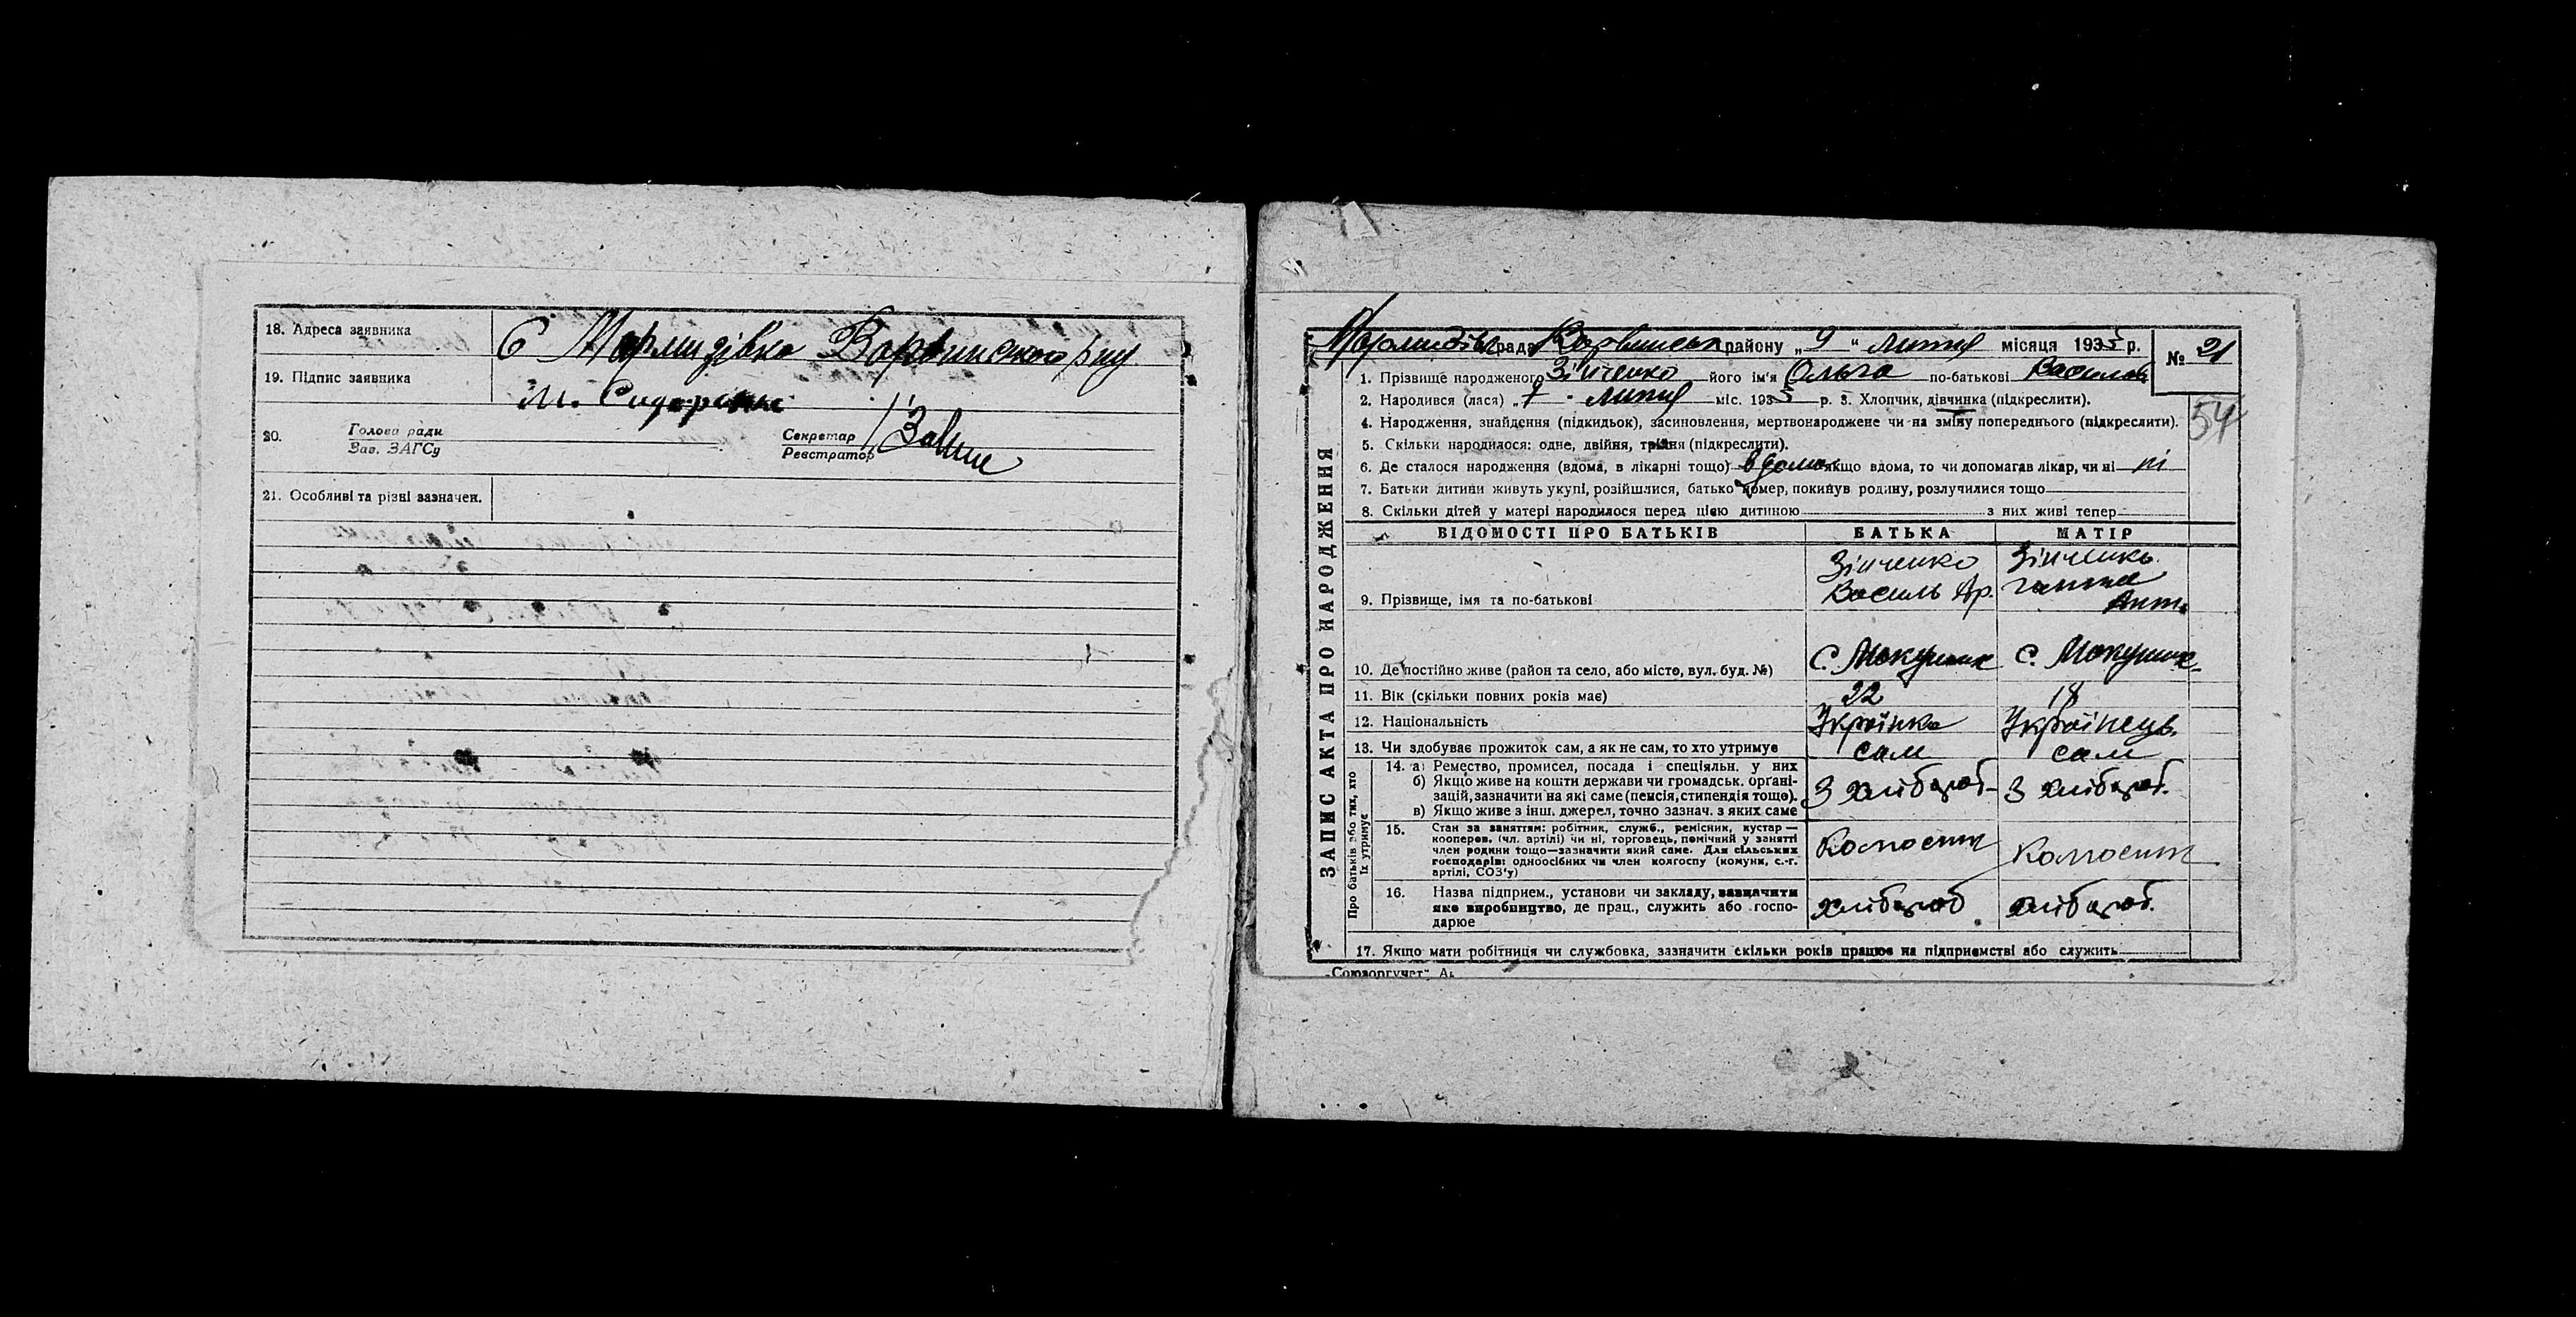 18. Адреса заявника С Мармизівка Варвинського р-ну
19. Підпис заявника М. Сидоренко
20. Голова ради Секретар
Зав. ЗАГСу Реєстратор
21. Особливі та різні зазначен.
рада району „9“ липня місяця 1935 р. № 21
1. Прізвище народженого Зінченко його ім'я Ольга по-батькові Василів
2. Народився (лася) „7 липня міс. 1935 р. 3. Хлопчик, дівчинка (підкреслити).
54
4. Народження, знайдення (підкидьок), засиновлення, мертвонароджене чи на зміну попереднього (підкреслити).
5. Скільки народилося: одне, двійня, трійня (підкреслити).
6. Де сталося народження (вдома, в лікарні тощо) вдома якщо вдома, то чи допомагав лікар, чи ні ні
7. Батьки дитини живуть укупі, розійшлися, батько помер, покинув родину, розлучилися тощо
8. Скільки дітей у матері народилося перед цією дитиною з них живі тепер
ЗАПИС АКТА ПРО НАРОДЖЕННЯ
ВІДОМОСТІ ПРО БАТЬКІВ БАТЬКА МАТІР
9. Прізвище, імя та по-батькові Зінченко Василь Ар. Зінченко Ганна Ант.
10. Де постійно живе (район та село, або місто, вул. буд. №) с. Макушиха с. Макушиха
11. Вік (скільки повних років має) 22 18
12. Національність Українка Українець
13. Чи здобуває прожиток сам, а як не сам, то хто утримує сам сам
Про батьків або тих, хто їх утримує
14. а) Ремество, промисел, посада і спеціяльн. у них
б) Якщо живе на кошти держави чи громадськ. органі-
зацій, зазначити на які саме (пенсія, стипендія тощо). З хлібороб. З хлібороб.
в) Якщо живе з інш. джерел, точно зазнач. з яких саме
15. Стан за заняттям: робітник, служб., ремісник, кустар —
кооперов. (чл. артілі) чи ні, торговець, помічний у занятті
член родини тощо—зазначити який саме. Для сільських
господарів: одноосібних чи член колгоспу (комуни, с.-г.
артілі, СОЗ'у) Колгоспн Колгоспн
16. Назва підприєм., установи чи закладу, зазначити
яке виробництво, де прац., служить або госпо-
дарює хлібороб хлібороб.
17. Якщо мати робітниця чи службовка, зазначити скільки років працює на підприємстві або служить
„Союзоргучет“